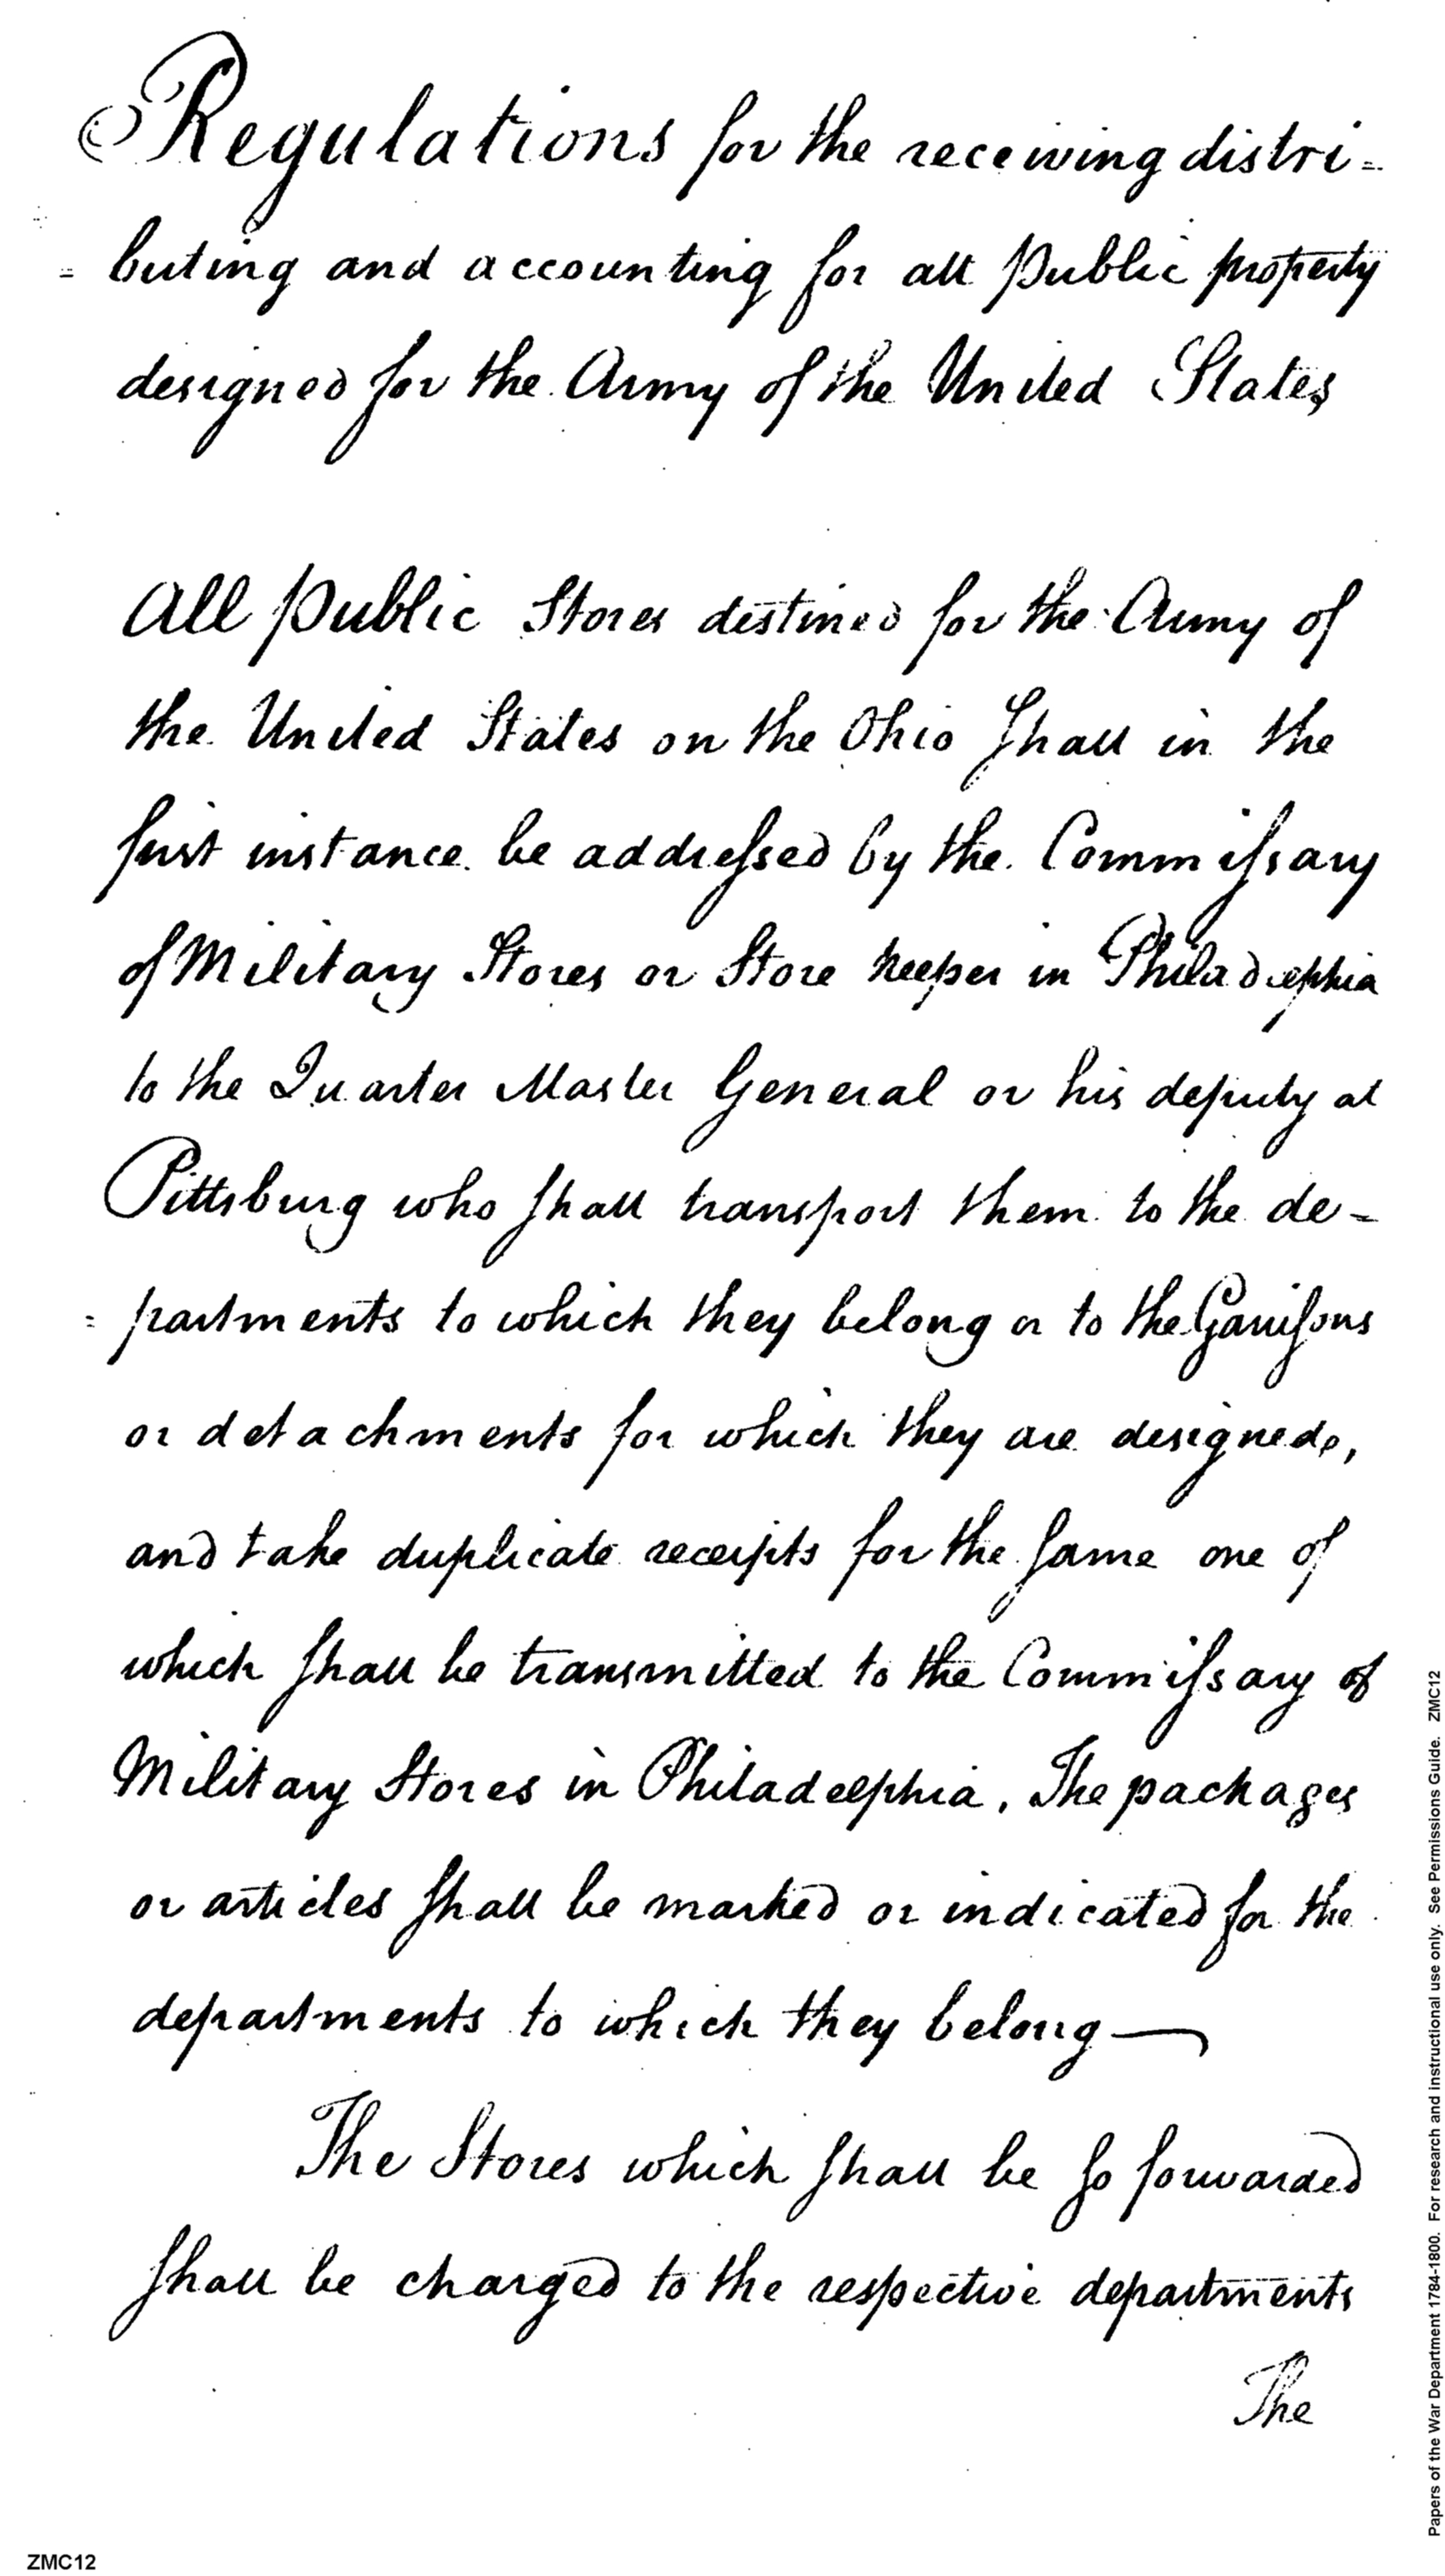 Regulations for the receiving distri=
=buting and accounting for all Public property
designed for the Army of the United States
All Public Stores destined for the Army of
the United States on the Ohio Shall in the
first instance be addressed by the Commissary
of Military Stores or Store keeper in Philadelphia
to the Quarter Master General or his deputy at
Pittsburg who shall transport them to the de=
=partments to which they belong or to the Garrisons
or detachments for which they are designed,
and take duplicate receipts for the same one of
which shall be transmitted to the Commissary of
Military Stores in Philadelphia. The packages
or articles shall be marked or indicated for the
departments to which they belong—
The Stores which shall be so forwarded
shall be charged to the respective departments
The
Papers of the War Department 1784-1800. For research and instructional use only. See Permissions Guide. ZMC12
ZMC12